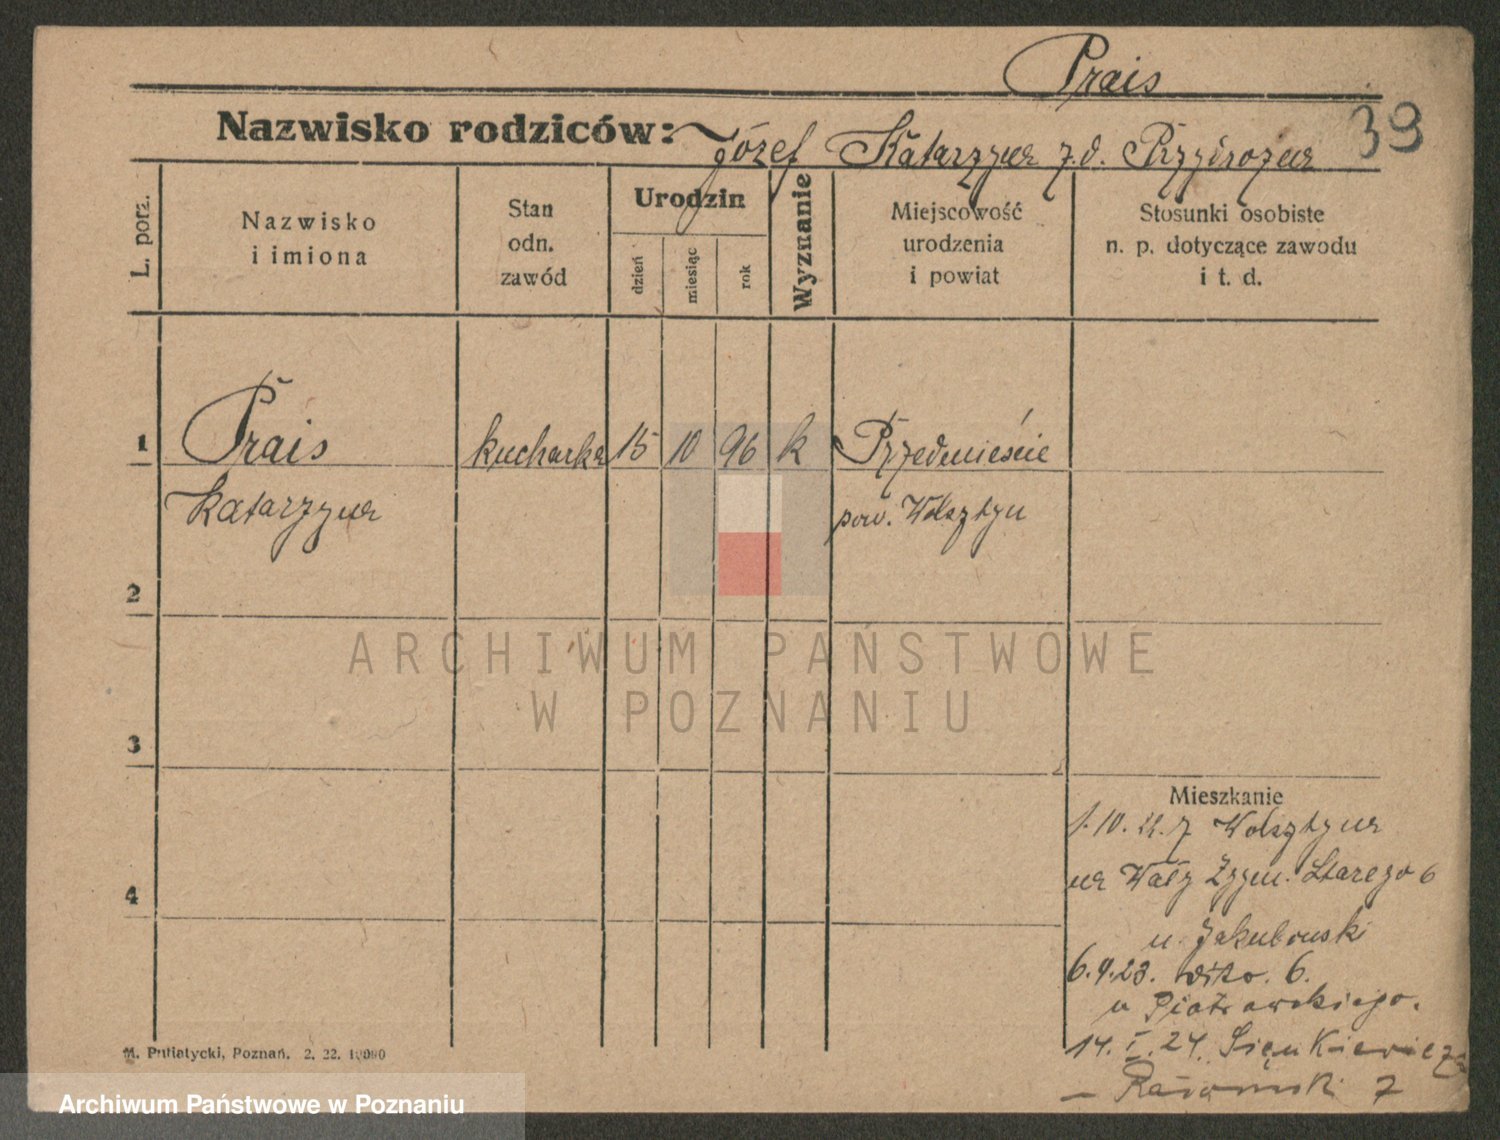 Prais
39
Nazwisko rodziców: Józef Katarzyna z.d. Przydrożna
L. porz.
Nazwisko
i imiona
Stan
odn.
zawód
Urodzin
dzień
miesiąc
rok
Wyznanie
Miejscowość
urodzenia
i powiat
Stosunki osobiste
n. p. dotyczące zawodu
i t. d.
1
Prais
kucharka
15
10
96
k
Przedmieście
Katarzyna
pow. Wolsztyn
2
3
4
ARCHIWUM PAŃSTWOWE
W POZNANIU
Mieszkanie
1.10.22. z Wolsztyna
na Wały Zygm. Starego 6
u Jakubowski
6.4.23. dito. 6.
u Piotrowskiego.
14.I.24. Sienkiewicza
7
M. Putiatycki, Poznań. 2. 22. 10000
Archiwum Państwowe w Poznaniu